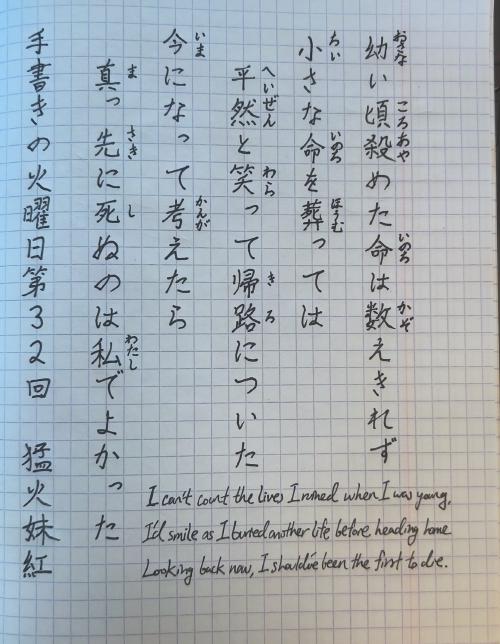 幼い頃殺めた命は数えきれず
小さな命を葬っては
平然と笑って帰路についた
今になって考えたら
真っ先に死ぬのは私でよかった
手書きの火曜日第32回 猛火妹紅
おさな ころ あや いのち かぞ
ちい いのち ほうむ
へいぜん わら きろ
いま かんが
ま さき し わたし
I can't count the lives I ruined when I was young,
I'd smile as I buried another life before heading home
Looking back now, I should've been the first to die.